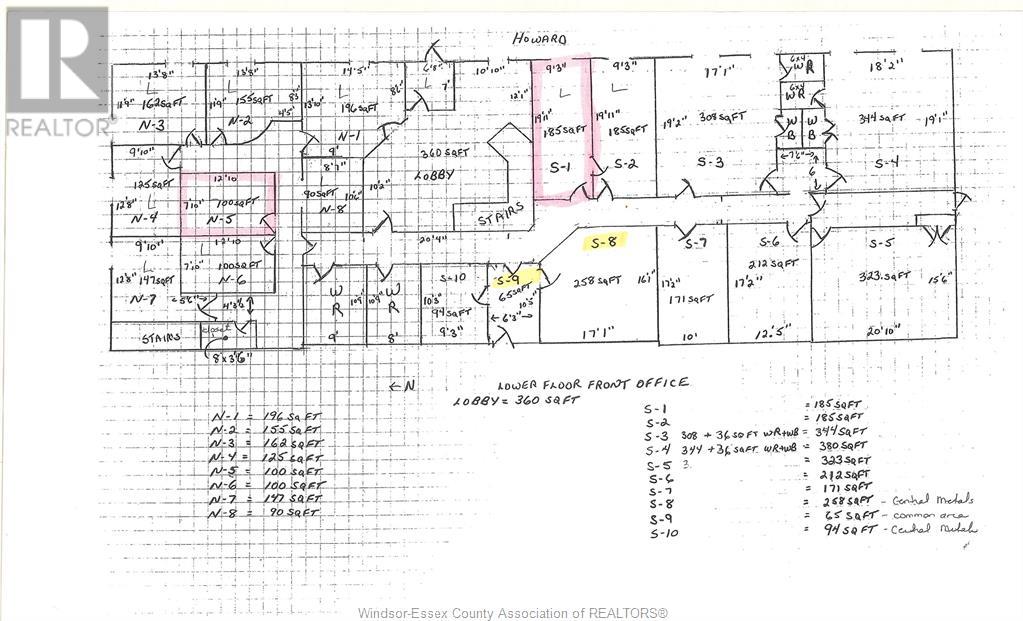 HOWARD
REALTOR®
13'8"
L
11'9" 162 SQFT
N-3
13'8"
L
11'9" 155 SQFT
N-2
8'3"
4'5"
14'5"
L
13'10" 196 SQFT
N-1
9'
8'2"
6'8"
7'
10'10"
12'1"
360 SQFT
LOBBY
STAIRS
20'4"
9'3"
L
19'11"
185 SQFT
S-1
9'3"
L
19'11"
185 SQFT
S-2
17'1"
19'2" 308 SQFT
S-3
6x4
WR
6x3
WR
WB
WB
7'6"
6
18'2"
344 SQFT
19'1"
S-4
9'10"
125 SQFT
12'8" L
N-4
12'10
7'10" 100 SQFT
N-5
8'1"
90 SQFT 10'6
N-8
10'2"
9'10"
12'8" 147 SQFT
L
N-7
12'10"
L
7'10"
100 SQFT
N-6
5'6"
4'3½
STAIRS
closet
8'x3'6"
WR
10'9"
9'
WR
10'9"
8'
S-10
10'3"
94 SQFT
9'3"
S-9
65 SQFT
10'5"
6'3"
S-8
258 SQFT 16'1"
17'1"
S-7
17'2"
171 SQFT
10'
S-6
212 SQFT
17'2"
12'5"
S-5
323 SQFT
15'6"
20'10"
← N
LOWER FLOOR FRONT OFFICE
LOBBY = 360 SQFT
N-1 = 196 SQFT
N-2 = 155 SQFT
N-3 = 162 SQFT
N-4 = 125 SQFT
N-5 = 100 SQFT
N-6 = 100 SQFT
N-7 = 147 SQFT
N-8 = 90 SQFT
S-1 = 185 SQFT
S-2 = 185 SQFT
S-3 308 + 36 SQFT WR+WB = 344 SQFT
S-4 344 + 36 SQFT WR+WB = 380 SQFT
S-5 3 = 323 SQFT
S-6 = 212 SQFT
S-7 = 171 SQFT
S-8 = 258 SQFT - Central Metals
S-9 = 65 SQFT - common area
S-10 = 94 SQFT - Central Metals
Windsor-Essex County Association of REALTORS®